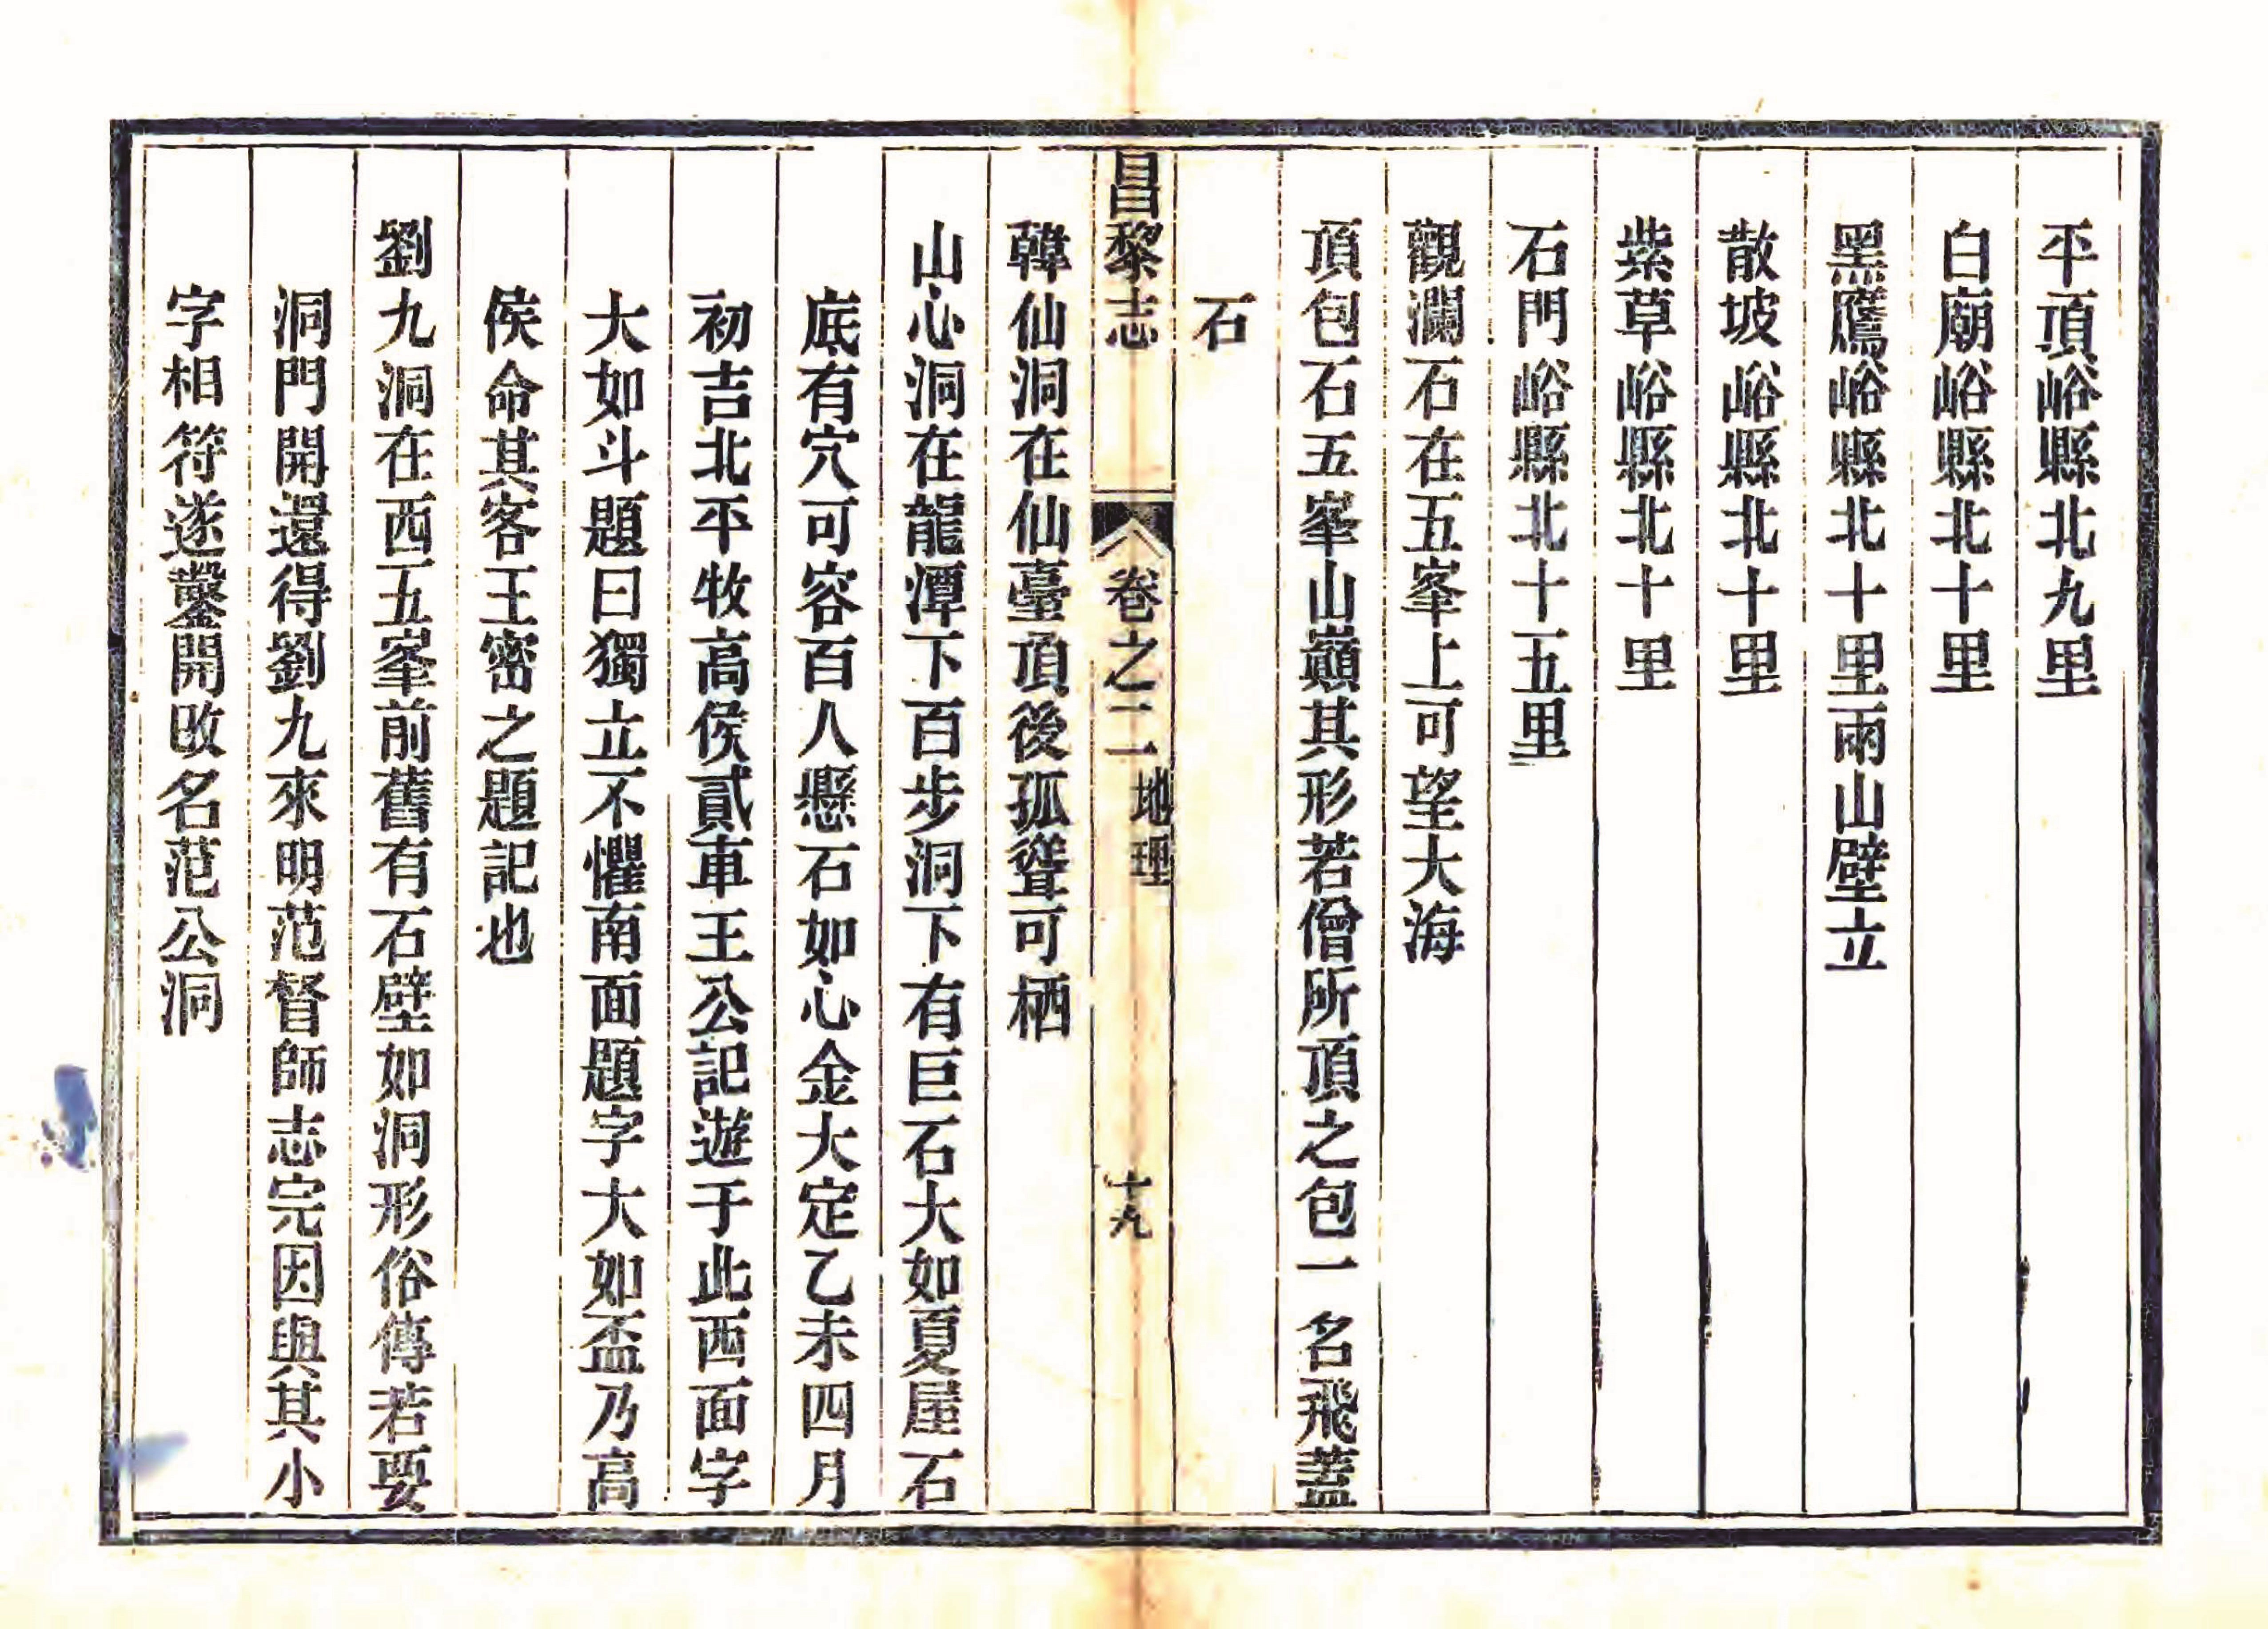 平頂峪縣北九里
白廟峪縣北十里
黑鷹峪縣北十里兩山壁立
散坡峪縣北十里
紫草峪縣北十里
石門峪縣北十五里
觀瀾石在五峯上可望大海
頂包石五峯山巔其形若僧所頂之包一名飛蓋
石
昌黎志 卷之二 地理 十九
韓仙洞在仙臺頂後孤聳可栖
山心洞在龍潭下百步洞下有巨石大如夏屋石
底有穴可容百人懸石如心金大定乙未四月
初吉北平牧高侯貳車王公記遊于此西面字
大如斗題曰獨立不懼南面題字大如盃乃高
侯命其客王密之題記也
劉九洞在西五峯前舊有石壁如洞形俗傳若要
洞門開還得劉九來明范督師志完因與其小
字相符遂鑿開改名范公洞